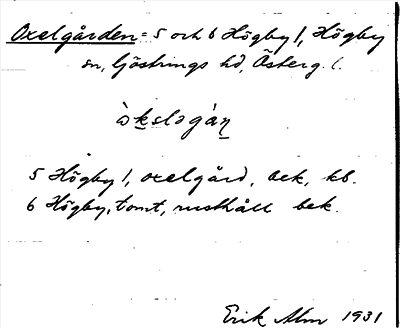 Oxelgården = 5 och 6 Högby 1, Högby
sn, Göstrings hd, Österg. l.
ò̀kslɔgá̀n
5 Högby 1, oxelgård, bek, kb.
6 Högby, tomt, rusthåll bek.
Erik Alm 1931